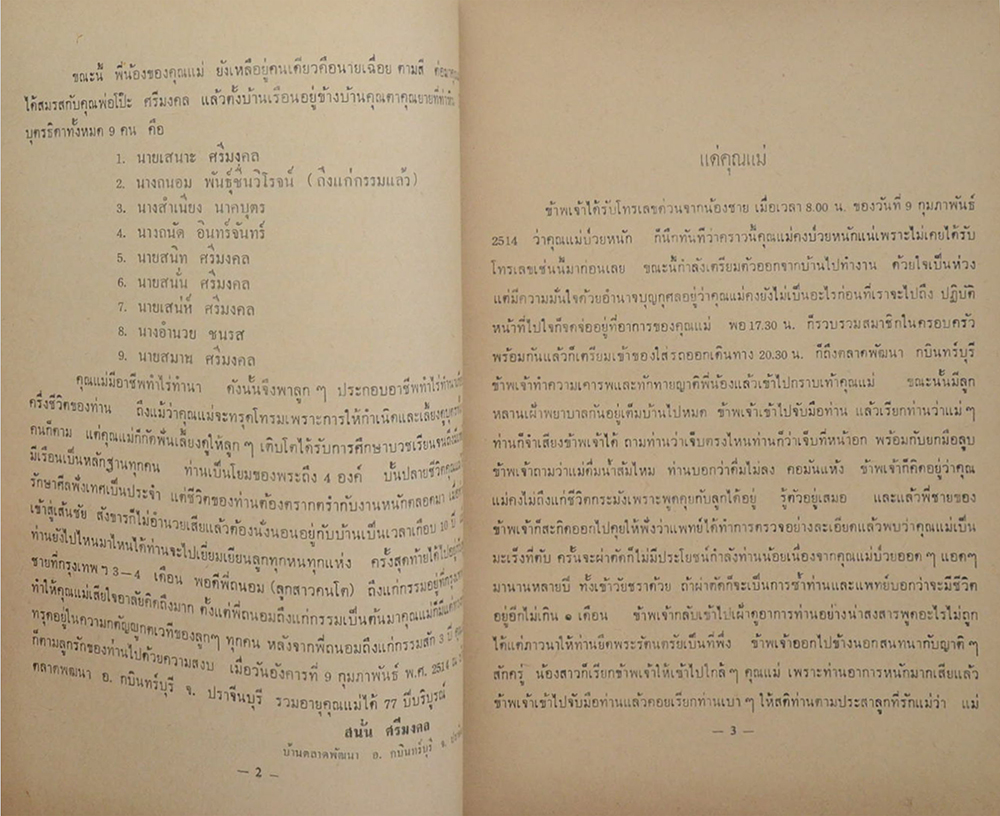 ขณะนี้ พี่น้องของคุณแม่ ยังเหลืออยู่คนเดียวคือนายเฉื่อย ตามสี ต่อมา
ได้สมรสกับคุณพ่อโป๊ะ ศรีมงคล แล้วตั้งบ้านเรือนอยู่ข้างบ้านคุณตาคุณยายที่
บุตรธิดาทั้งหมด 9 คน คือ
1. นายเสนาะ ศรีมงคล
2. นางถนอม พันธุ์ชื่นวิโรจน์ (ถึงแก่กรรมแล้ว)
3. นางสำเนียง นาคบุตร
4. นางถนัด อินทร์จันทร์
5. นายสนิท ศรีมงคล
6. นายสนั่น ศรีมงคล
7. นายเสน่ห์ ศรีมงคล
8. นางอำนวย ชนรส
9. นายสมาน ศรีมงคล
คุณแม่มีอาชีพทำไร่ทำนา ดังนั้นจึงพาลูก ๆ ประกอบอาชีพทำไร่
ครึ่งชีวิตของท่าน ถึงแม้ว่าคุณแม่จะทรุดโทรมเพราะการให้กำเนิดและเลี้ยงดูบุตร
คนก็ตาม แต่คุณแม่ก็กัดฟันเลี้ยงดูให้ลูก ๆ เติบโตได้รับการศึกษาบวชเรียน
มีเรือนเป็นหลักฐานทุกคน ท่านเป็นโยมของพระถึง 4 องค์ บั้นปลายชีวิต
รักษาศีลฟังเทศเป็นประจำ แต่ชีวิตของท่านต้องตรากตรำกับงานหนักตลอดมา
เข้าสู่เส้นชัย สังขารก็ไม่อำนวยเสียแล้วต้องนั่งนอนอยู่กับบ้านเป็นเวลาเกือบ 10 ปี
ท่านยังไปไหนมาไหนได้ท่านจะไปเยี่ยมเยียนลูกทุกหนทุกแห่ง ครั้งสุดท้ายได้ไป
ชายที่กรุงเทพ ฯ 3—4 เดือน พอดีพี่ถนอม (ลูกสาวคนโต) ถึงแก่กรรมอยู่ที่
ทำให้คุณแม่เสียใจอาลัยคิดถึงมาก ตั้งแต่พี่ถนอมถึงแก่กรรมเป็นต้นมาคุณแม่ก็
ทรุดอยู่ในความกตัญญูกตเวทีของลูกๆ ทุกคน หลังจากพี่ถนอมถึงแก่กรรมสัก 3 ปี
ก็ตามลูกรักของท่านไปด้วยความสงบ เมื่อวันอังคารที่ 9 กุมภาพันธ์ พ.ศ. 2514
ตลาดพัฒนา อ. กบินทร์บุรี จ. ปราจีนบุรี รวมอายุคุณแม่ได้ 77 ปีบริบูรณ์
สนั่น ศรีมงคล
บ้านตลาดพัฒนา อ. กบินทร์บุรี จ.
— 2 —
แด่คุณแม่
ข้าพเจ้าได้รับโทรเลขด่วนจากน้องชาย เมื่อเวลา 8.00 น. ของวันที่ 9 กุมภาพันธ์
2514 ว่าคุณแม่ป่วยหนัก ก็นึกทันทีว่าคราวนี้คุณแม่คงป่วยหนักแน่เพราะไม่เคยได้รับ
โทรเลขเช่นนี้มาก่อนเลย ขณะนี้กำลังเตรียมตัวออกจากบ้านไปทำงาน ด้วยใจเป็นห่วง
แต่มีความมั่นใจด้วยอำนาจบุญกุศลอยู่ว่าคุณแม่คงยังไม่เป็นอะไรก่อนที่เราจะไปถึง ปฏิบัติ
หน้าที่ไปใจก็จดจ่ออยู่ที่อาการของคุณแม่ พอ 17.30 น. ก็รวบรวมสมาชิกในครอบครัว
พร้อมกันแล้วก็เตรียมเข้าของใส่รถออกเดินทาง 20.30 น. ก็ถึงตลาดพัฒนา กบินทร์บุรี
ข้าพเจ้าทำความเคารพและทักทายญาติพี่น้องแล้วเข้าไปกราบเท้าคุณแม่ ขณะนั้นมีลูก
หลานเฝ้าพยาบาลกันอยู่เต็มบ้านไปหมด ข้าพเจ้าเข้าไปจับมือท่าน แล้วเรียกท่านว่าแม่ ๆ
ท่านก็จำเสียงข้าพเจ้าได้ ถามท่านว่าเจ็บตรงไหนท่านก็ว่าเจ็บที่หน้าอก พร้อมกับยกมือลูบ
ข้าพเจ้าถามว่าแม่ดื่มน้ำส้มไหม ท่านบอกว่าดื่มไม่ลง คอมันแห้ง ข้าพเจ้าก็คิดอยู่ว่าคุณ
แม่คงไม่ถึงแก่ชีวิตกระมังเพราะพูดคุยกับลูกได้อยู่ รู้ตัวอยู่เสมอ และแล้วพี่ชายของ
ข้าพเจ้าก็สะกิดออกไปคุยให้ฟังว่าแพทย์ได้ทำการตรวจอย่างละเอียดแล้วพบว่าคุณแม่เป็น
มะเร็งที่ตับ ครั้นจะผ่าตัดก็ไม่มีประโยชน์กำลังท่านน้อยเนื่องจากคุณแม่ป่วยออด ๆ แอด ๆ
มานานหลายปี ทั้งเข้าวัยชราด้วย ถ้าผ่าตัดก็จะเป็นการซ้ำท่านและแพทย์บอกว่าจะมีชีวิต
อยู่อีกไม่เกิน ๑ เดือน ข้าพเจ้ากลับเข้าไปเฝ้าดูอาการท่านอย่างน่าสงสารพูดอะไรไม่ถูก
ได้แต่ภาวนาให้ท่านยึดพระรัตนตรัยเป็นที่พึ่ง ข้าพเจ้าออกไปข้างนอกสนทนากับญาติ ๆ
สักครู่ น้องสาวก็เรียกข้าพเจ้าให้เข้าไปใกล้ ๆ คุณแม่ เพราะท่านอาการหนักมากเสียแล้ว
ข้าพเจ้าเข้าไปจับมือท่านแล้วคอยเรียกท่านเบา ๆ ให้สติท่านตามประสาลูกที่รักแม่ว่า แม่
— 3 —